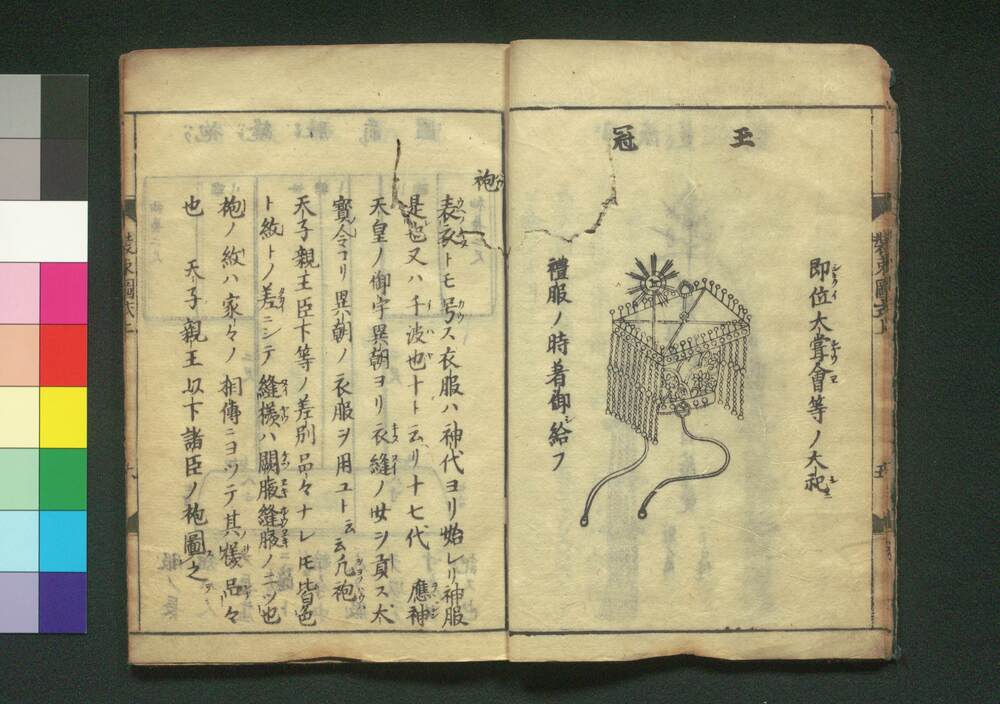 玉冠
即位大嘗會等ノ大祀
禮服ノ時着御シ給フ
袍
表衣トモ号ス衣服ハ神代ヨリ始レリ神服
是也又ハ千波也十ト云リ十七代 應神
天皇ノ御宇異朝ヨリ衣縫ノ女ヲ貢ス大
寳令ヨリ異朝ノ衣服ヲ用ユト云云凢袍
天子親王臣下等ノ差別品々ナレ𪜈皆色
ト紋トノ差ニシテ縫様ハ闕腋縫腋ノ二ツ也
袍ノ紋ハ家々ノ相傳ニヨツテ其様品々
也 天子親王以下諸臣ノ袍圖之